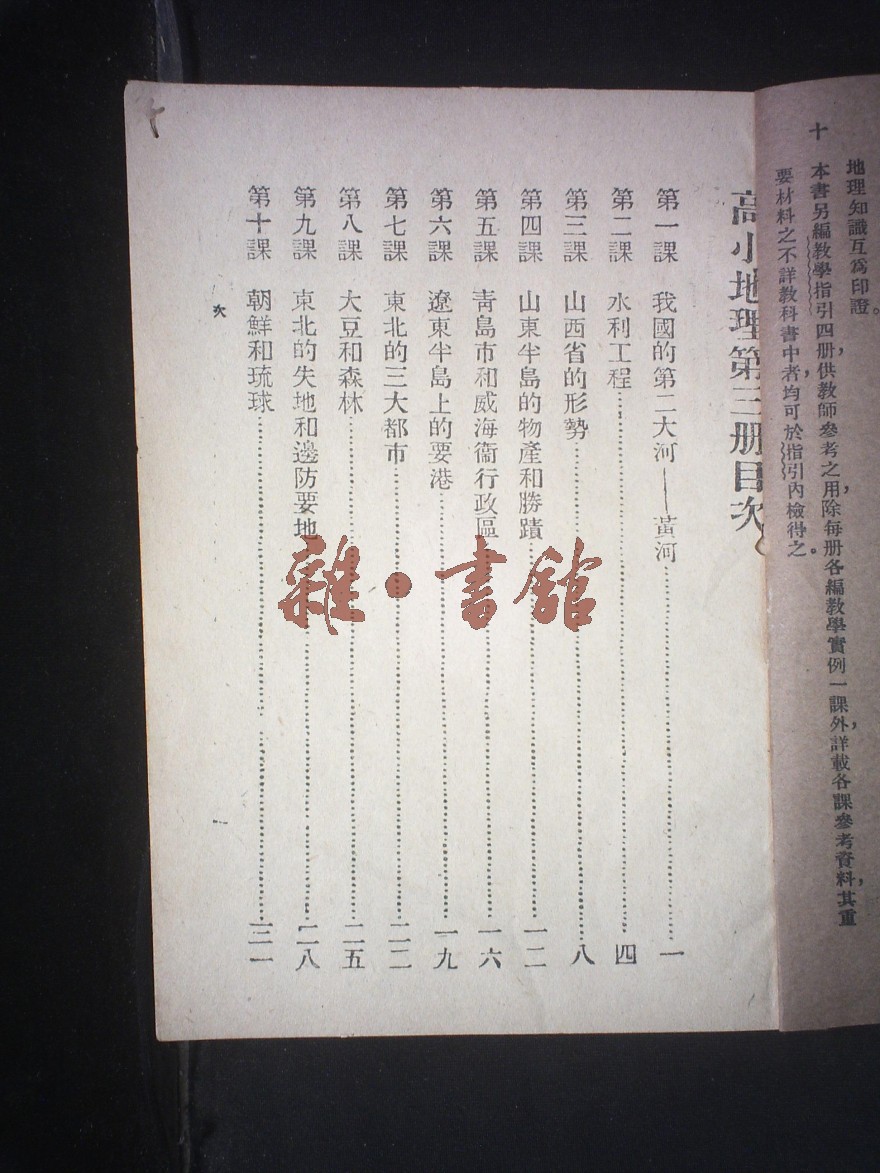 地理知識互爲印證。
十　本書另編教學指引四册，供教師參考之用，除每册各編教學實例一課外，詳載各課參考資料，其重
要材料之不詳教科書中者，均可於指引內檢得之。
高小地理第三册目次
第一課　我國的第二大河——黃河……一
第二課　水利工程……四
第三課　山西省的形勢……八
第四課　山東半島的物產和勝蹟……一二
第五課　青島市和威海衞行政區……一六
第六課　遼東半島上的要港……一九
第七課　東北的三大都市……二二
第八課　大豆和森林……二五
第九課　東北的失地和邊防要地……二八
第十課　朝鮮和琉球……三一
次
一
雜·書館